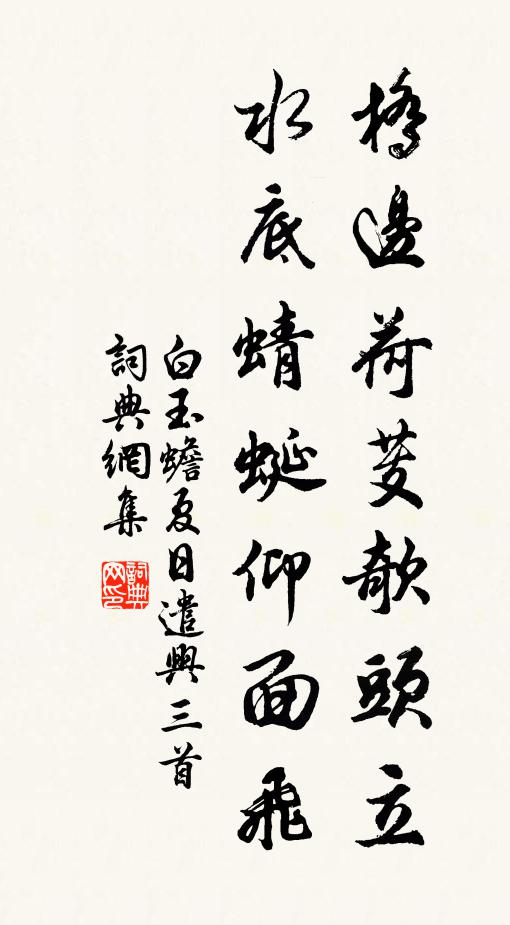 橋邊荷芰欹頭立
水底蜻蜓仰面飛
白玉蟾夏日遣興三首
詞典網集
詞典
网印